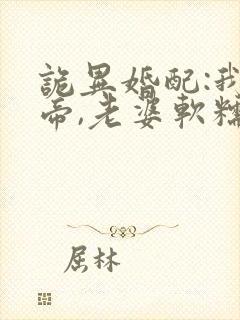 詭異婚配:我
帝,老婆軟糯
屈林